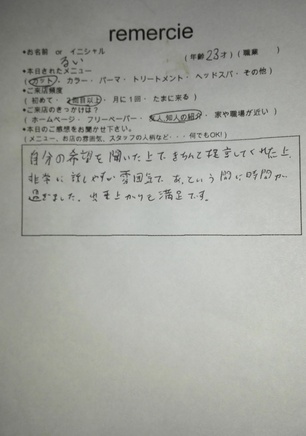 remercie
•お名前 or イニシャル
るい (年齢23才)(職業 )
•本日されたメニュー
(カット・カラー・パーマ・トリートメント・ヘッドスパ・その他)
•ご来店頻度
(初めて・2回目以上・月に1回・たまに来る)
•ご来店のきっかけは?
(ホームページ・フリーペーパー・友人,知人の紹介・家や職場が近い)
•本日のご感想をお聞かせ下さい。
(メニュー、お店の雰囲気、スタッフの人柄など・・・何でもOK!)
自分の希望を聞いた上で、きちんと提言してくれた上、
非常に話しやすい雰囲気で、あっという間に時間が
過ぎました。出来上がりも満足です。